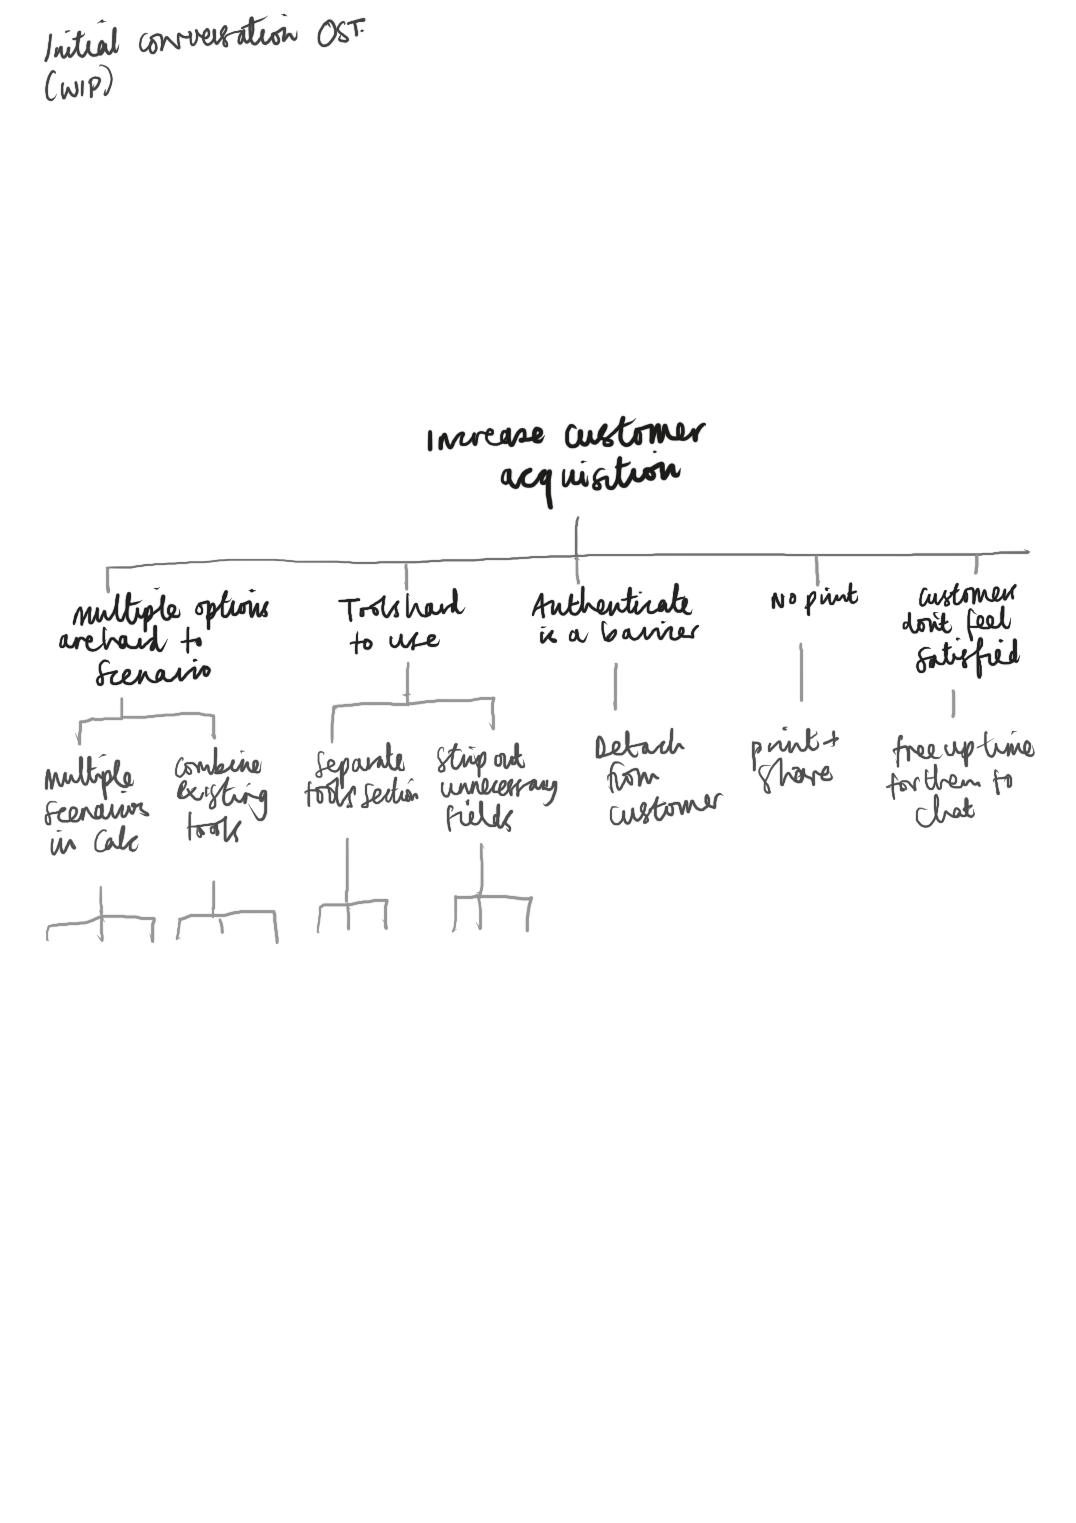 Initial conversation OST.
(WIP)
Increase customer
acquisition
Multiple options
are hard to
Scenario
Tools hard
to use
Authenticate
is a barrier
No print
Customer
don't feel
Satisfied
Multiple
Scenarios
in Calc
Combine
Existing
tools
Separate
tools section
Strip out
unnecessary
fields
Detach
from
customer
print +
share
free up time
for them to
chat